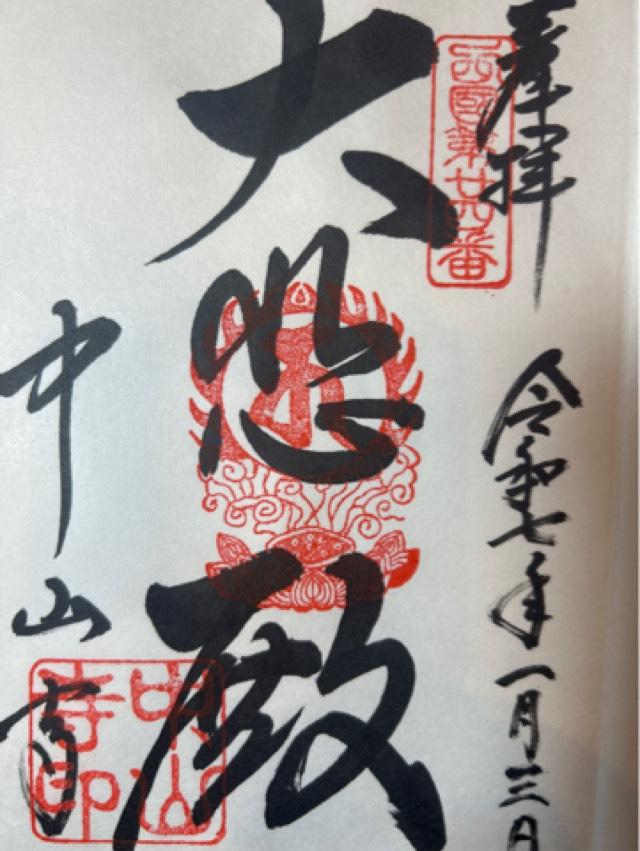 奉拝
令和七年一月三日
西国第廿四番
大悲殿
中山寺
中山寺印